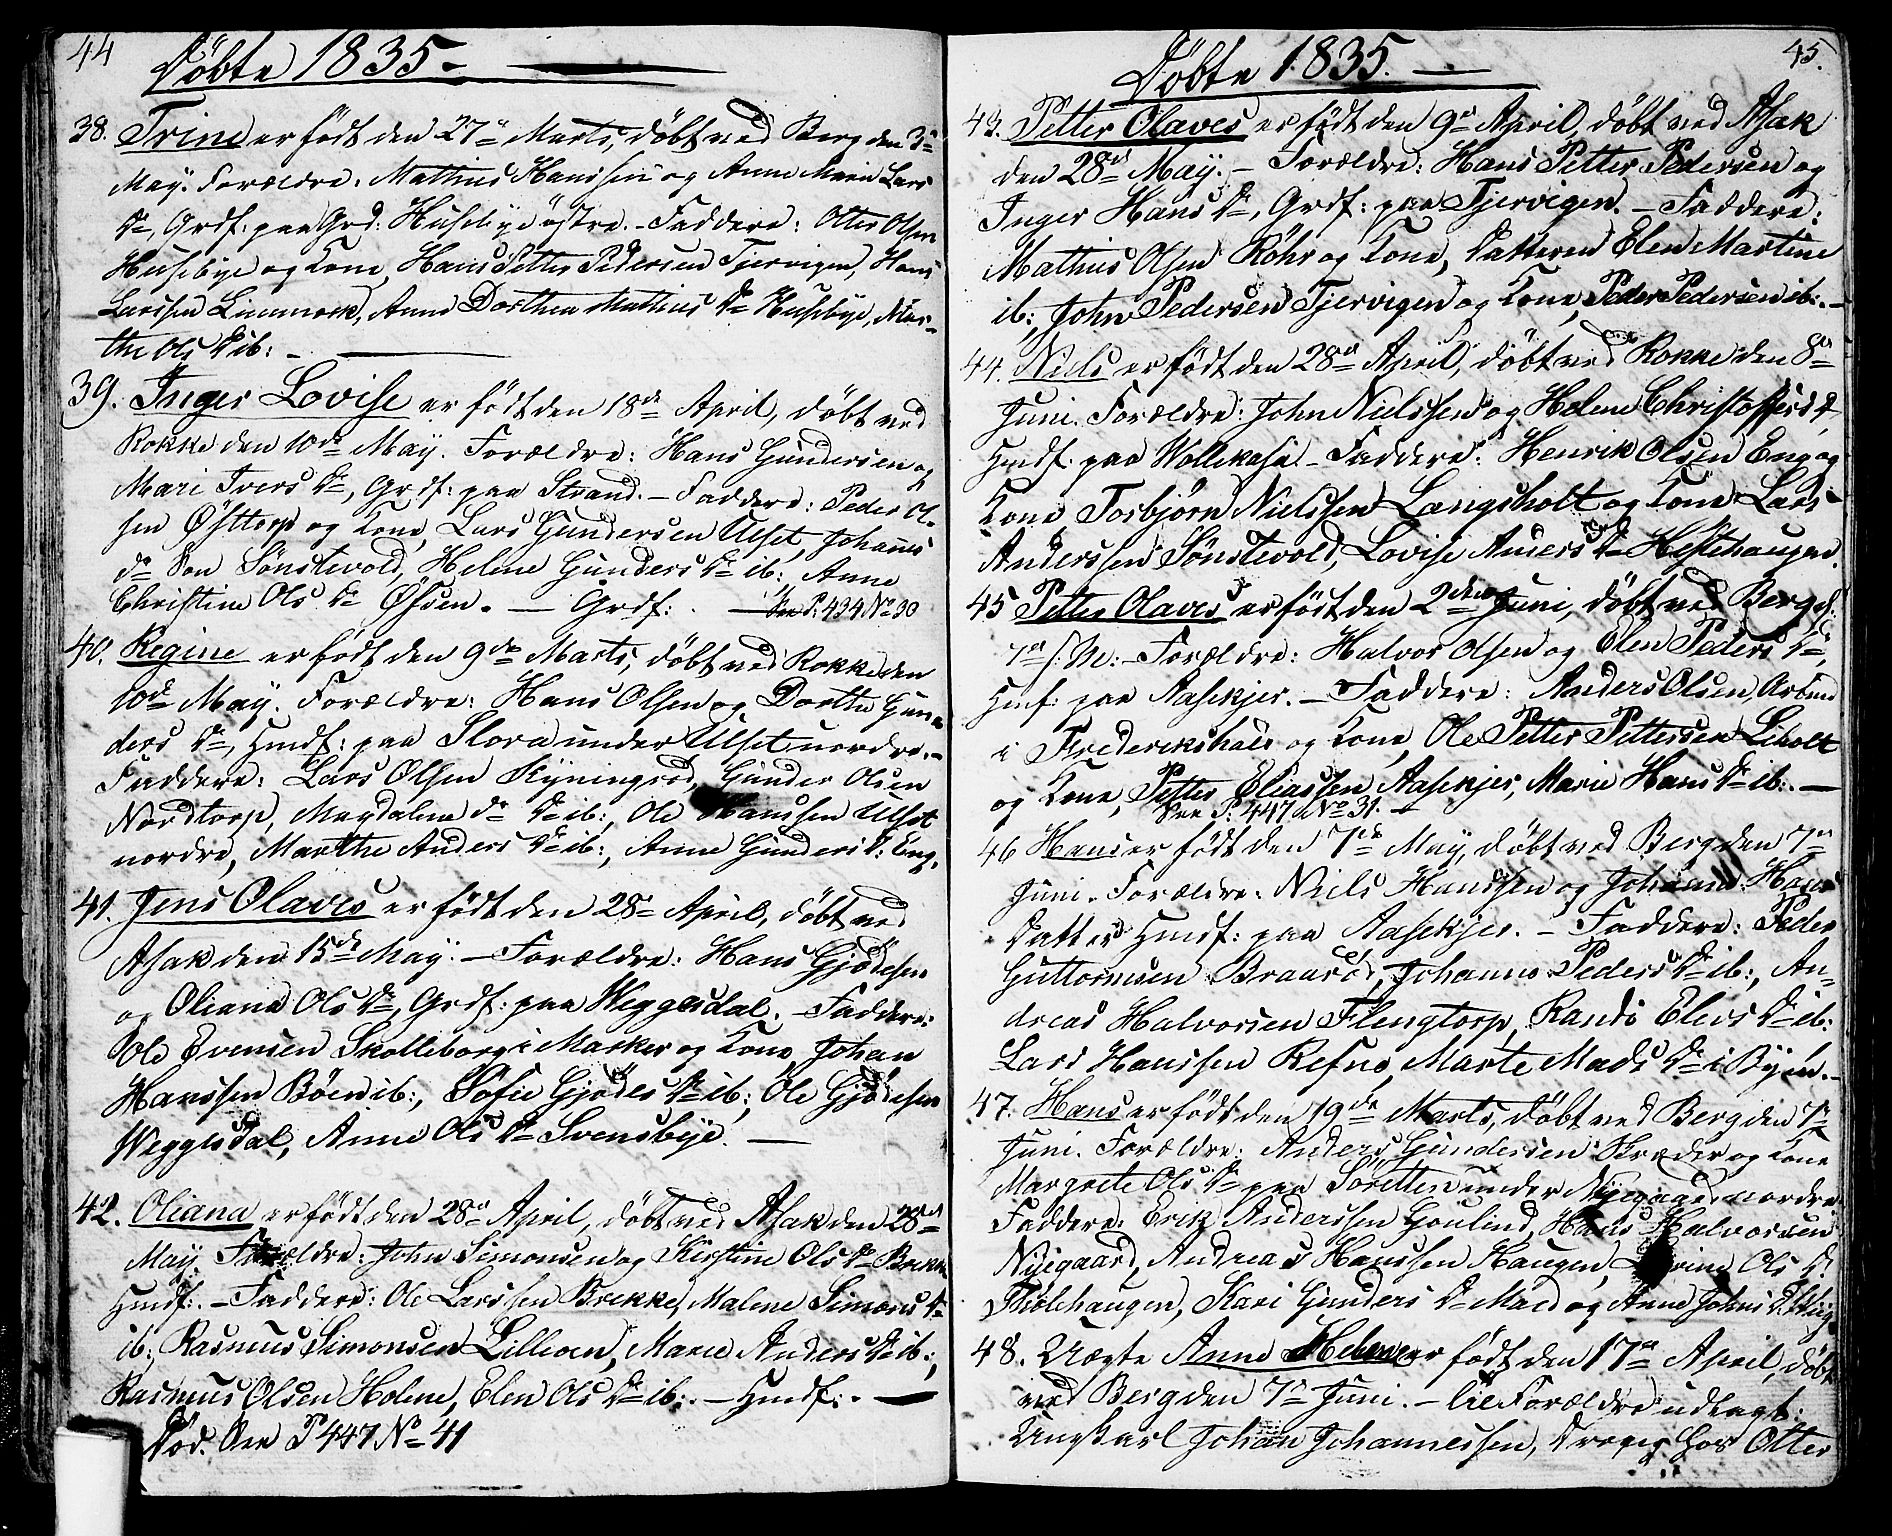 44
Döbte 1835.
38. Trine er født den 27de Marts, döbt ved Berg den 3de
May. Forældre: Mathius Hanssen og Anne Marie Lars
Dr, Grdf: paa Grd: Husebye östre. - Faddere: Otter Olsen
Husebye og Kone, Hans Petter Pedersen Tjervigen, Hans
Larssen Liumrock, Anne Dorthea Mathius Dr Husebye, Mar-
the Ols D ib: -
39. Inger Lovise er født den 18de April, döbt ved
Rokke den 10de May. Forældre: Hans Gundersen og
Mari Ivers Dr, Grdf: paa Strand. - Faddere: Peder Ol-
sen Østtorp og Kone, Lars Gundersen Ulset, Johannes
do Søn Sönstevold, Helene Gunders Dr ib:, Anne
Christine Ols Dr Øssen. - Grdf: . - See P. 434 No 30
40. Regine er født den 9de Marts, döbt ved Rokke den
10de May. Forældre: Hans Olsen og Dorthe Gun-
ders Dr, Hmdf: paa Flora under Ulset nordre. -
Faddere: Lars Olsen Kyningsrød, Gunder Olsen
Nordtorp, Magdalena do Dr ib:, Ole Hanssen Ulset
nordre, Marthe Anders Dr ib:, Anne Gunders D: Eng.
41. Jens Olaves er født den 28de April, döbt ved
Asak den 15de May. - Forældre: Hans Gjödesen
og Oliana Ols Dr, Grdf: paa Weggesdal. - Faddere:
Ole Evensen Skolleborg i Marker og Kone, Johan
Hanssen Böen ib:, Sofie Gjödes Dr ib:, Ole Gjödesen
Weggesdal, Anne Ols Dr Svensbye. -
42. Oliana er født den 28de April, döbt ved Asak den 28de
May. Forældre: John Simonsen og Kirstine Ols Dr Brekke
Hmdf:. - Faddere: Ole Larssen Brekke, Malene Simons Dr
ib:, Rasmus Simonsen Lilleøen, Maren Anders Dr ib:,
Rasmus Olsen Holme, Elen Ols Dr ib:. - Hmdf:. -
Död. See P 447 No 41
45.
Döbte 1835. -
43. Petter Olaves er født den 9de April, döbt ved Asak
den 28de May. - Forældre: Hans Petter Pedersen og
Inger Hans Dr, Grdf: paa Tjervigen. - Faddere:
Mathius Olsen Röhr og Kone, Datteren Elen Martine
ib:, John Pedersen Tjervigen og Kone, Peder Pedersen ib:. -
44. Niels er født den 28de April, döbt ved Rokke den 8de
Juni. Forældre: John Nielssen og Helene Christoffers D,
Hmdf: paa Wollekasa. - Faddere: Henrik Olsen Eng og
Kone Torbjørn Nielssen Langsholt og Kone Lars
Anderssen Sönstevold, Lovise Anders Dr Hestehaugen.
45 Petter Olaves er født den 2den Juni, döbt ved Berg d.
7de s: M: - Forældre: Halvor Olsen og Elen Peders Dr,
Hmf: paa Aasekjer. - Faddere: Anders Olsen, Arbmd
i Frederikshald og Kone, Ole Petter Pettersen Liholt
og Kone, Petter Eliassen Aasekjer, Marie Hans Dr ib:. -
See P: 447 No 31. -
46 Hans er født den 7de May, döbt ved Berg den 7de
Juni. Forældre: Niels Hanssen og Johanne Hans
Datter Hmdf: paa Aasekjer. - Faddere: Peder
Guttormsen Braaröd, Johanne Peders Dr ib:, An-
dreas Halvorsen Flengtorp, Randi Elevs Dr ib:
Lars Hanssen Refne, Marte Mads Dr i Byen. -
47. Hans er født den 19de Marts, döbt ved Berg den 7de
Juni. Forældre: Anders Gundersen Kræder og Kone
Margrete Ols Dr paa Söretten under Nyegaard nordre
Faddere: Erik Anderssen Goulund, Hans Halvorsen
Nyegaard, Andreas Hanssen Haugen, Ols D:
Tholehaugen, Kari Gunders Dr Mad og Anne Johns D:
48. Uægte Anne Helene er født den 17de April, döbt
ved Berg den 7de Juni. - til Forældre udlagt:
Ungkarl Johan Johannessen, Dreng hos Otter